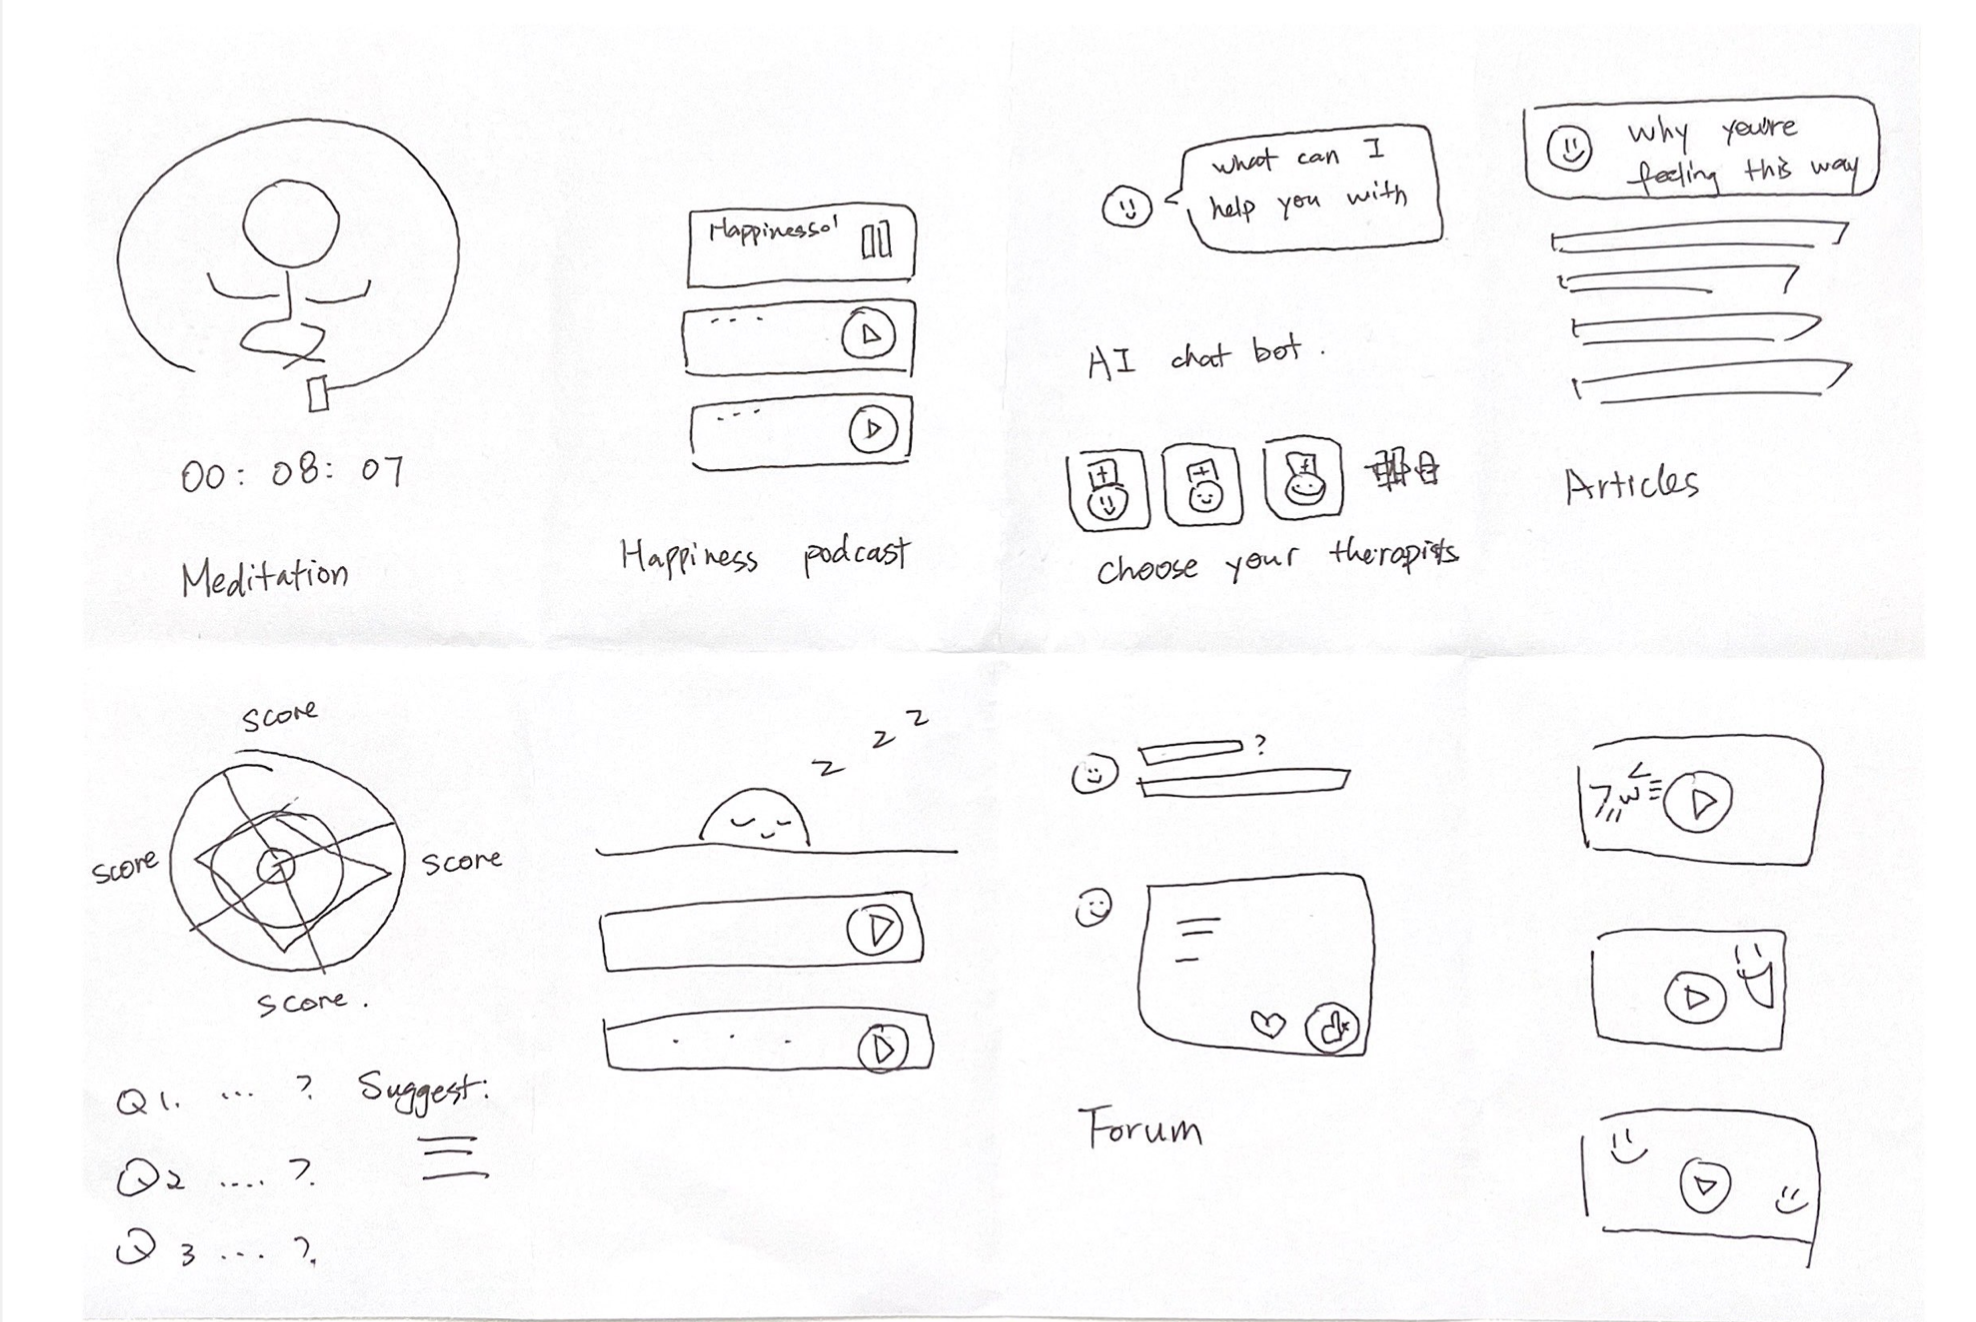 00: 08: 07
Meditation
Happiness
Happiness podcast
what can I
help you with
AI chat bot.
choose your therapists
why you're
feeling this way
Articles
score
score
score
score.
Q1. ... ?
Q2 .... ?
Q3 ... ?
Suggest:
z z z
?
Forum